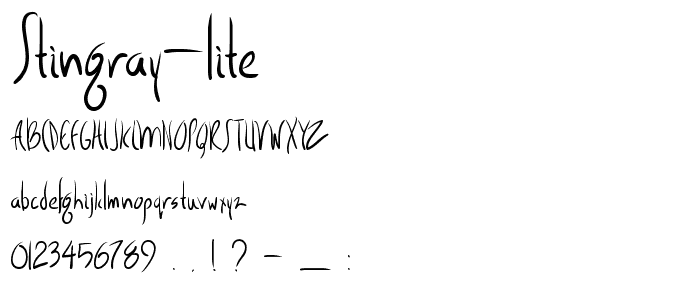 Stingray-lite
ABCDEFGHIJKLMNOPQRSTUVWXYZ
abcdefghijklmnopqrstuvwxyz
0123456789 . , ! ? - _ :